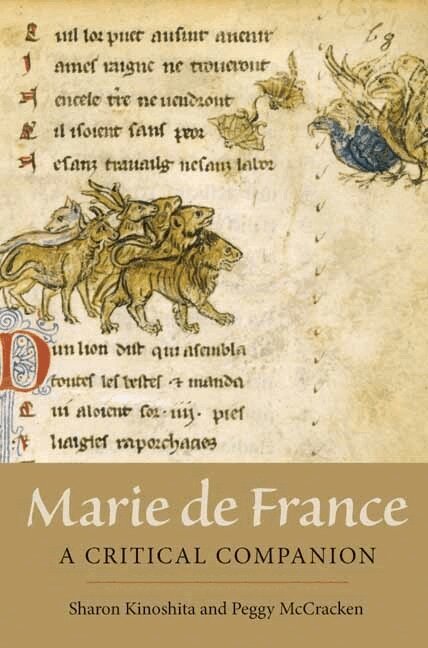 uil lor puet ausint auenir
bg
ames ne troueront
encele tre ne uendront
il isoient sanz
esanz trauailg nesanz labor
Dun lion dist qui asembla
toutes les bestes & manda
ui aloient sor .iiij. pies
liaigles raporchacies
Marie de France
A CRITICAL COMPANION
Sharon Kinoshita and Peggy McCracken